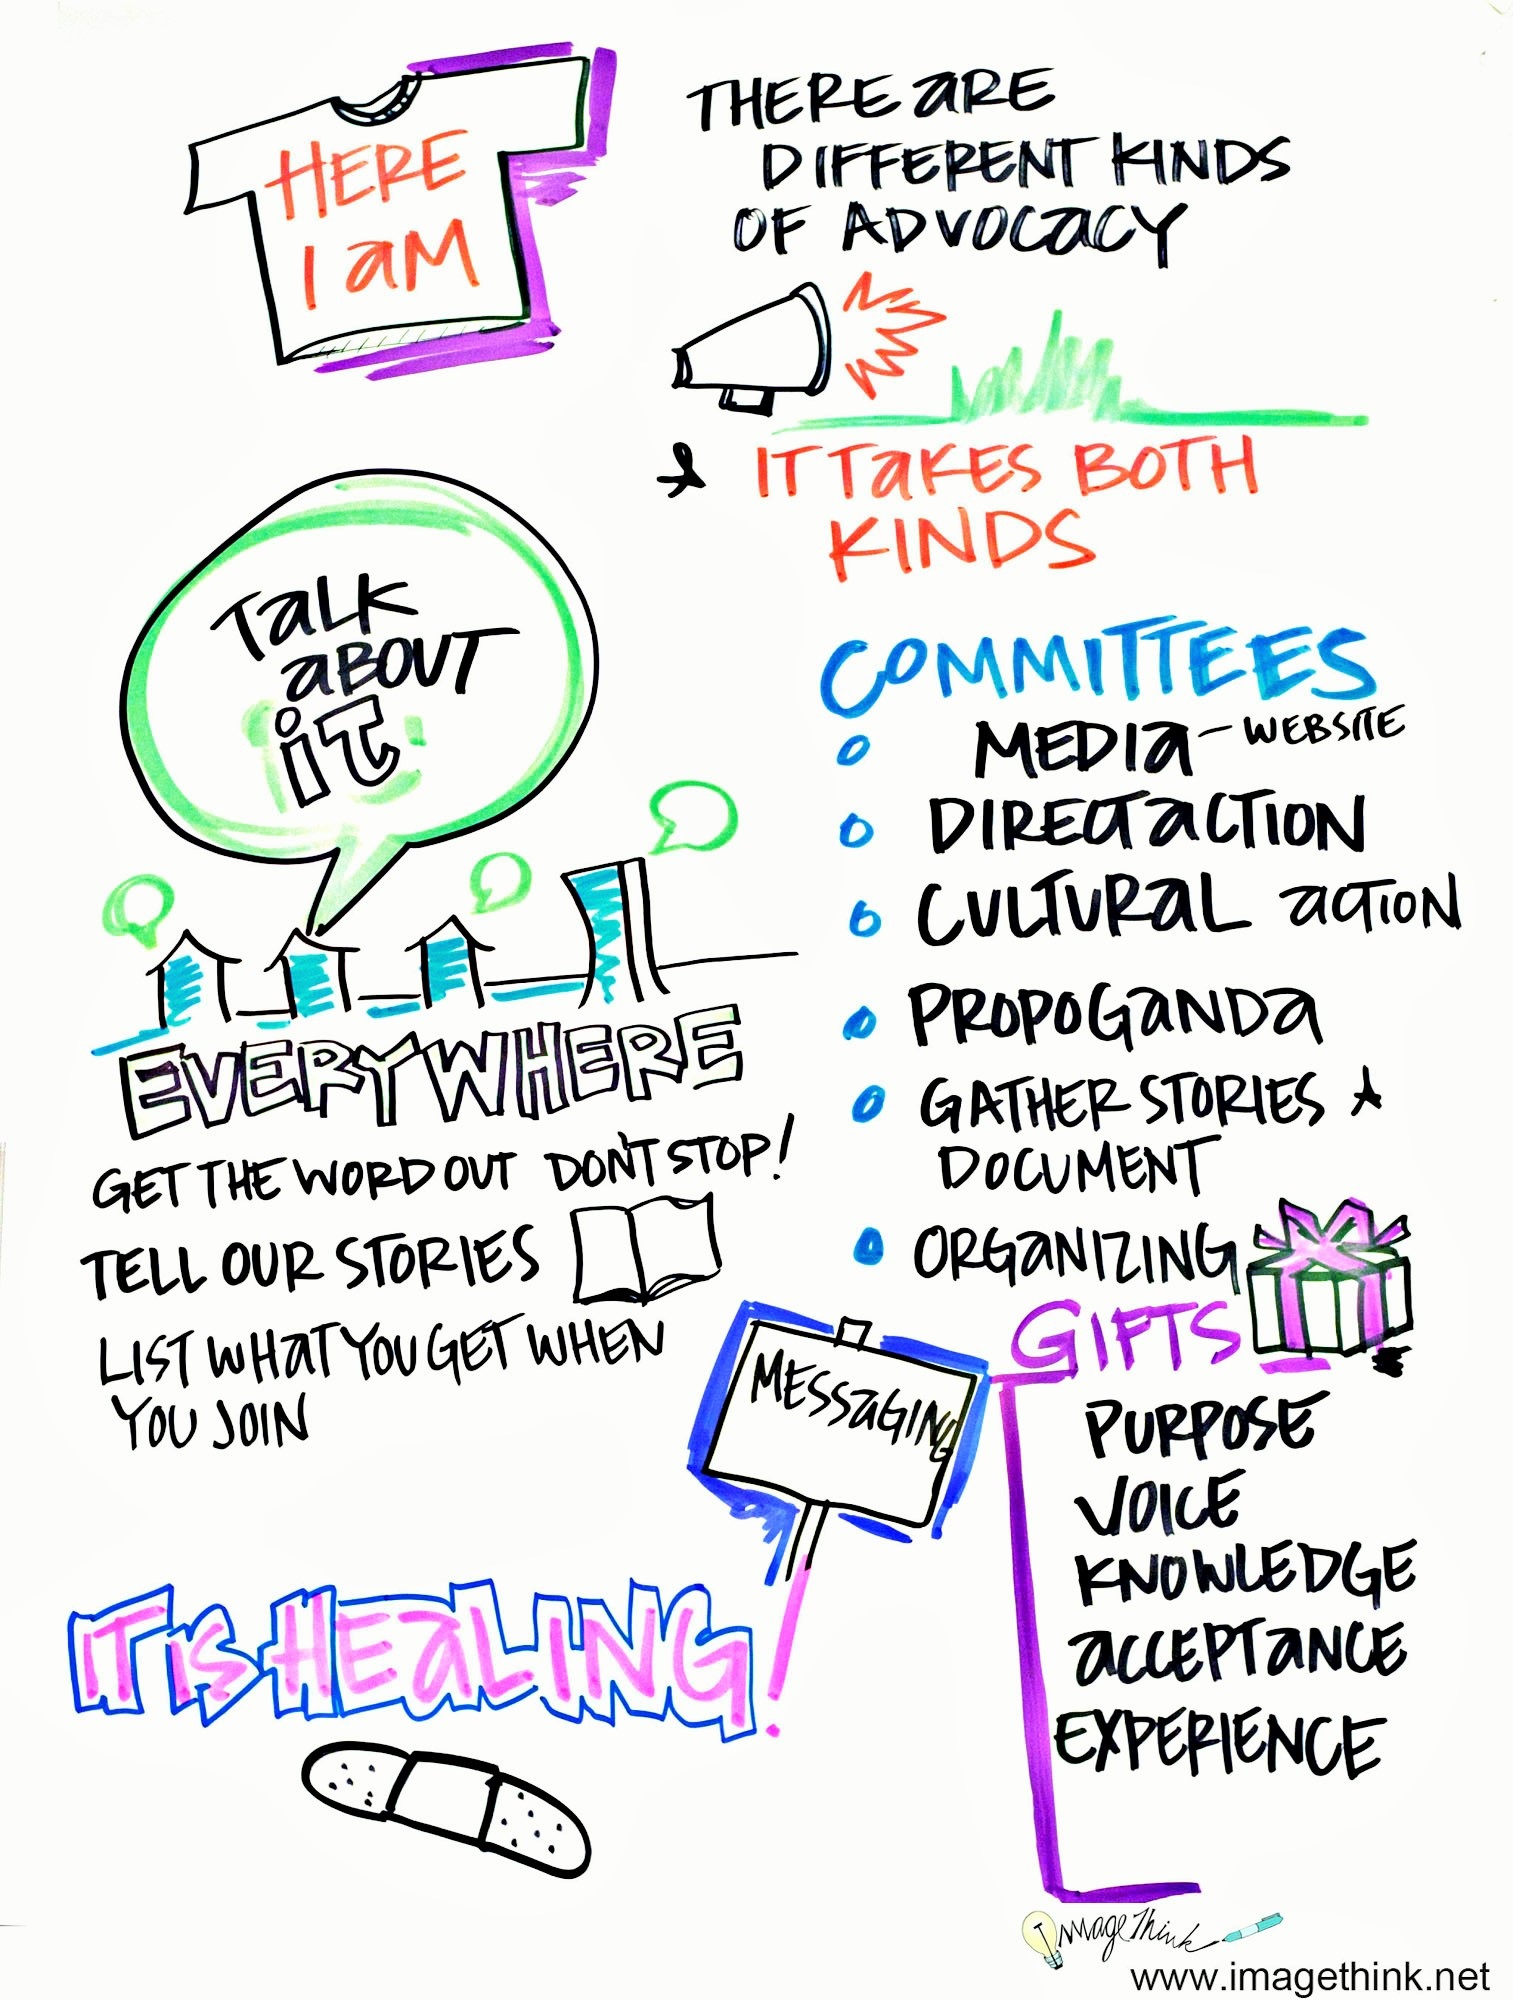 HERE
I AM
THERE ARE
DIFFERENT KINDS
OF ADVOCACY
IT TAKES BOTH
KINDS
TALK
ABOUT
IT
EVERYWHERE
GET THE WORD OUT DON'T STOP!
TELL OUR STORIES
LIST WHAT YOU GET WHEN
YOU JOIN
COMMITTEES
MEDIA - WEBSITE
DIRECT ACTION
CULTURAL ACTION
PROPOGANDA
GATHER STORIES &
DOCUMENT
ORGANIZING
MESSAGING
GIFTS
PURPOSE
VOICE
KNOWLEDGE
ACCEPTANCE
EXPERIENCE
IT IS HEALING!
ImageThink
www.imagethink.net